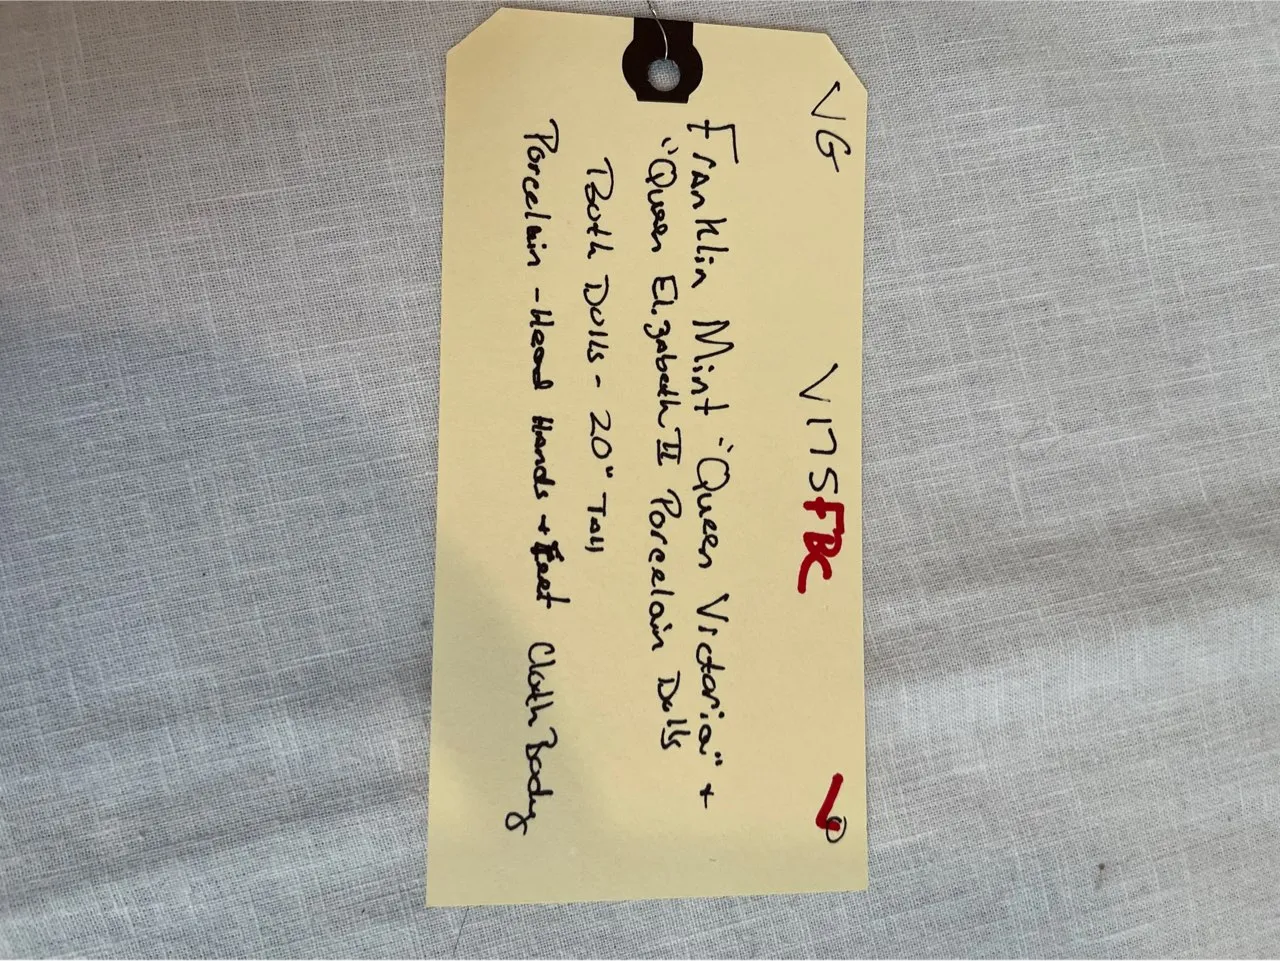 VG V175FBC
Franklin Mint "Queen Victoria" +
"Queen Elizabeth II Porcelain Dolls
Both Dolls - 20" Tall
Porcelain - Head Hands + Feet Cloth Body